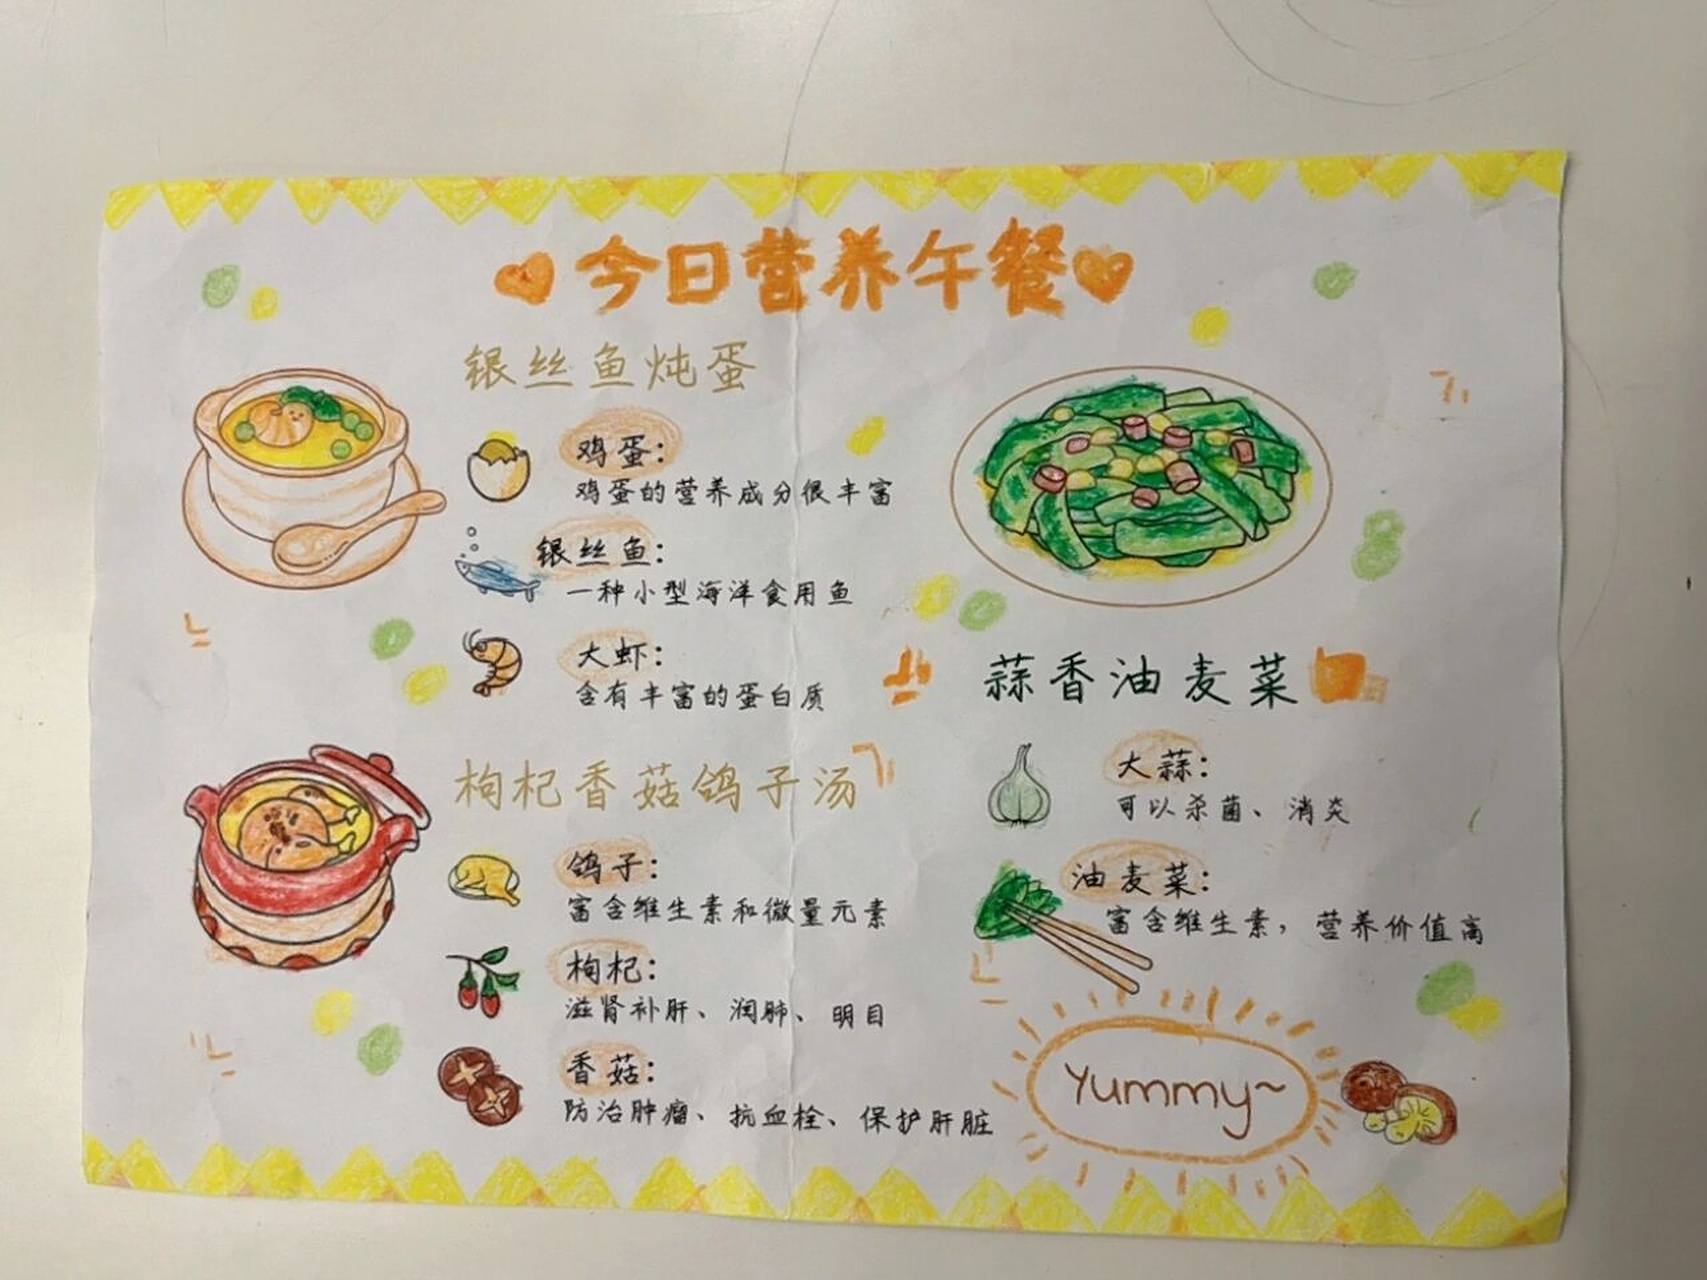 今日营养午餐
银丝鱼炖蛋
鸡蛋：
鸡蛋的营养成分很丰富
银丝鱼：
一种小型海洋食用鱼
大虾：
含有丰富的蛋白质
枸杞香菇鸽子汤
鸽子：
富含维生素和微量元素
枸杞：
滋肾补肝、润肺、明目
香菇：
防治肿瘤、抗血栓、保护肝脏
蒜香油麦菜
大蒜：
可以杀菌、消炎
油麦菜：
富含维生素，营养价值高
Yummy~